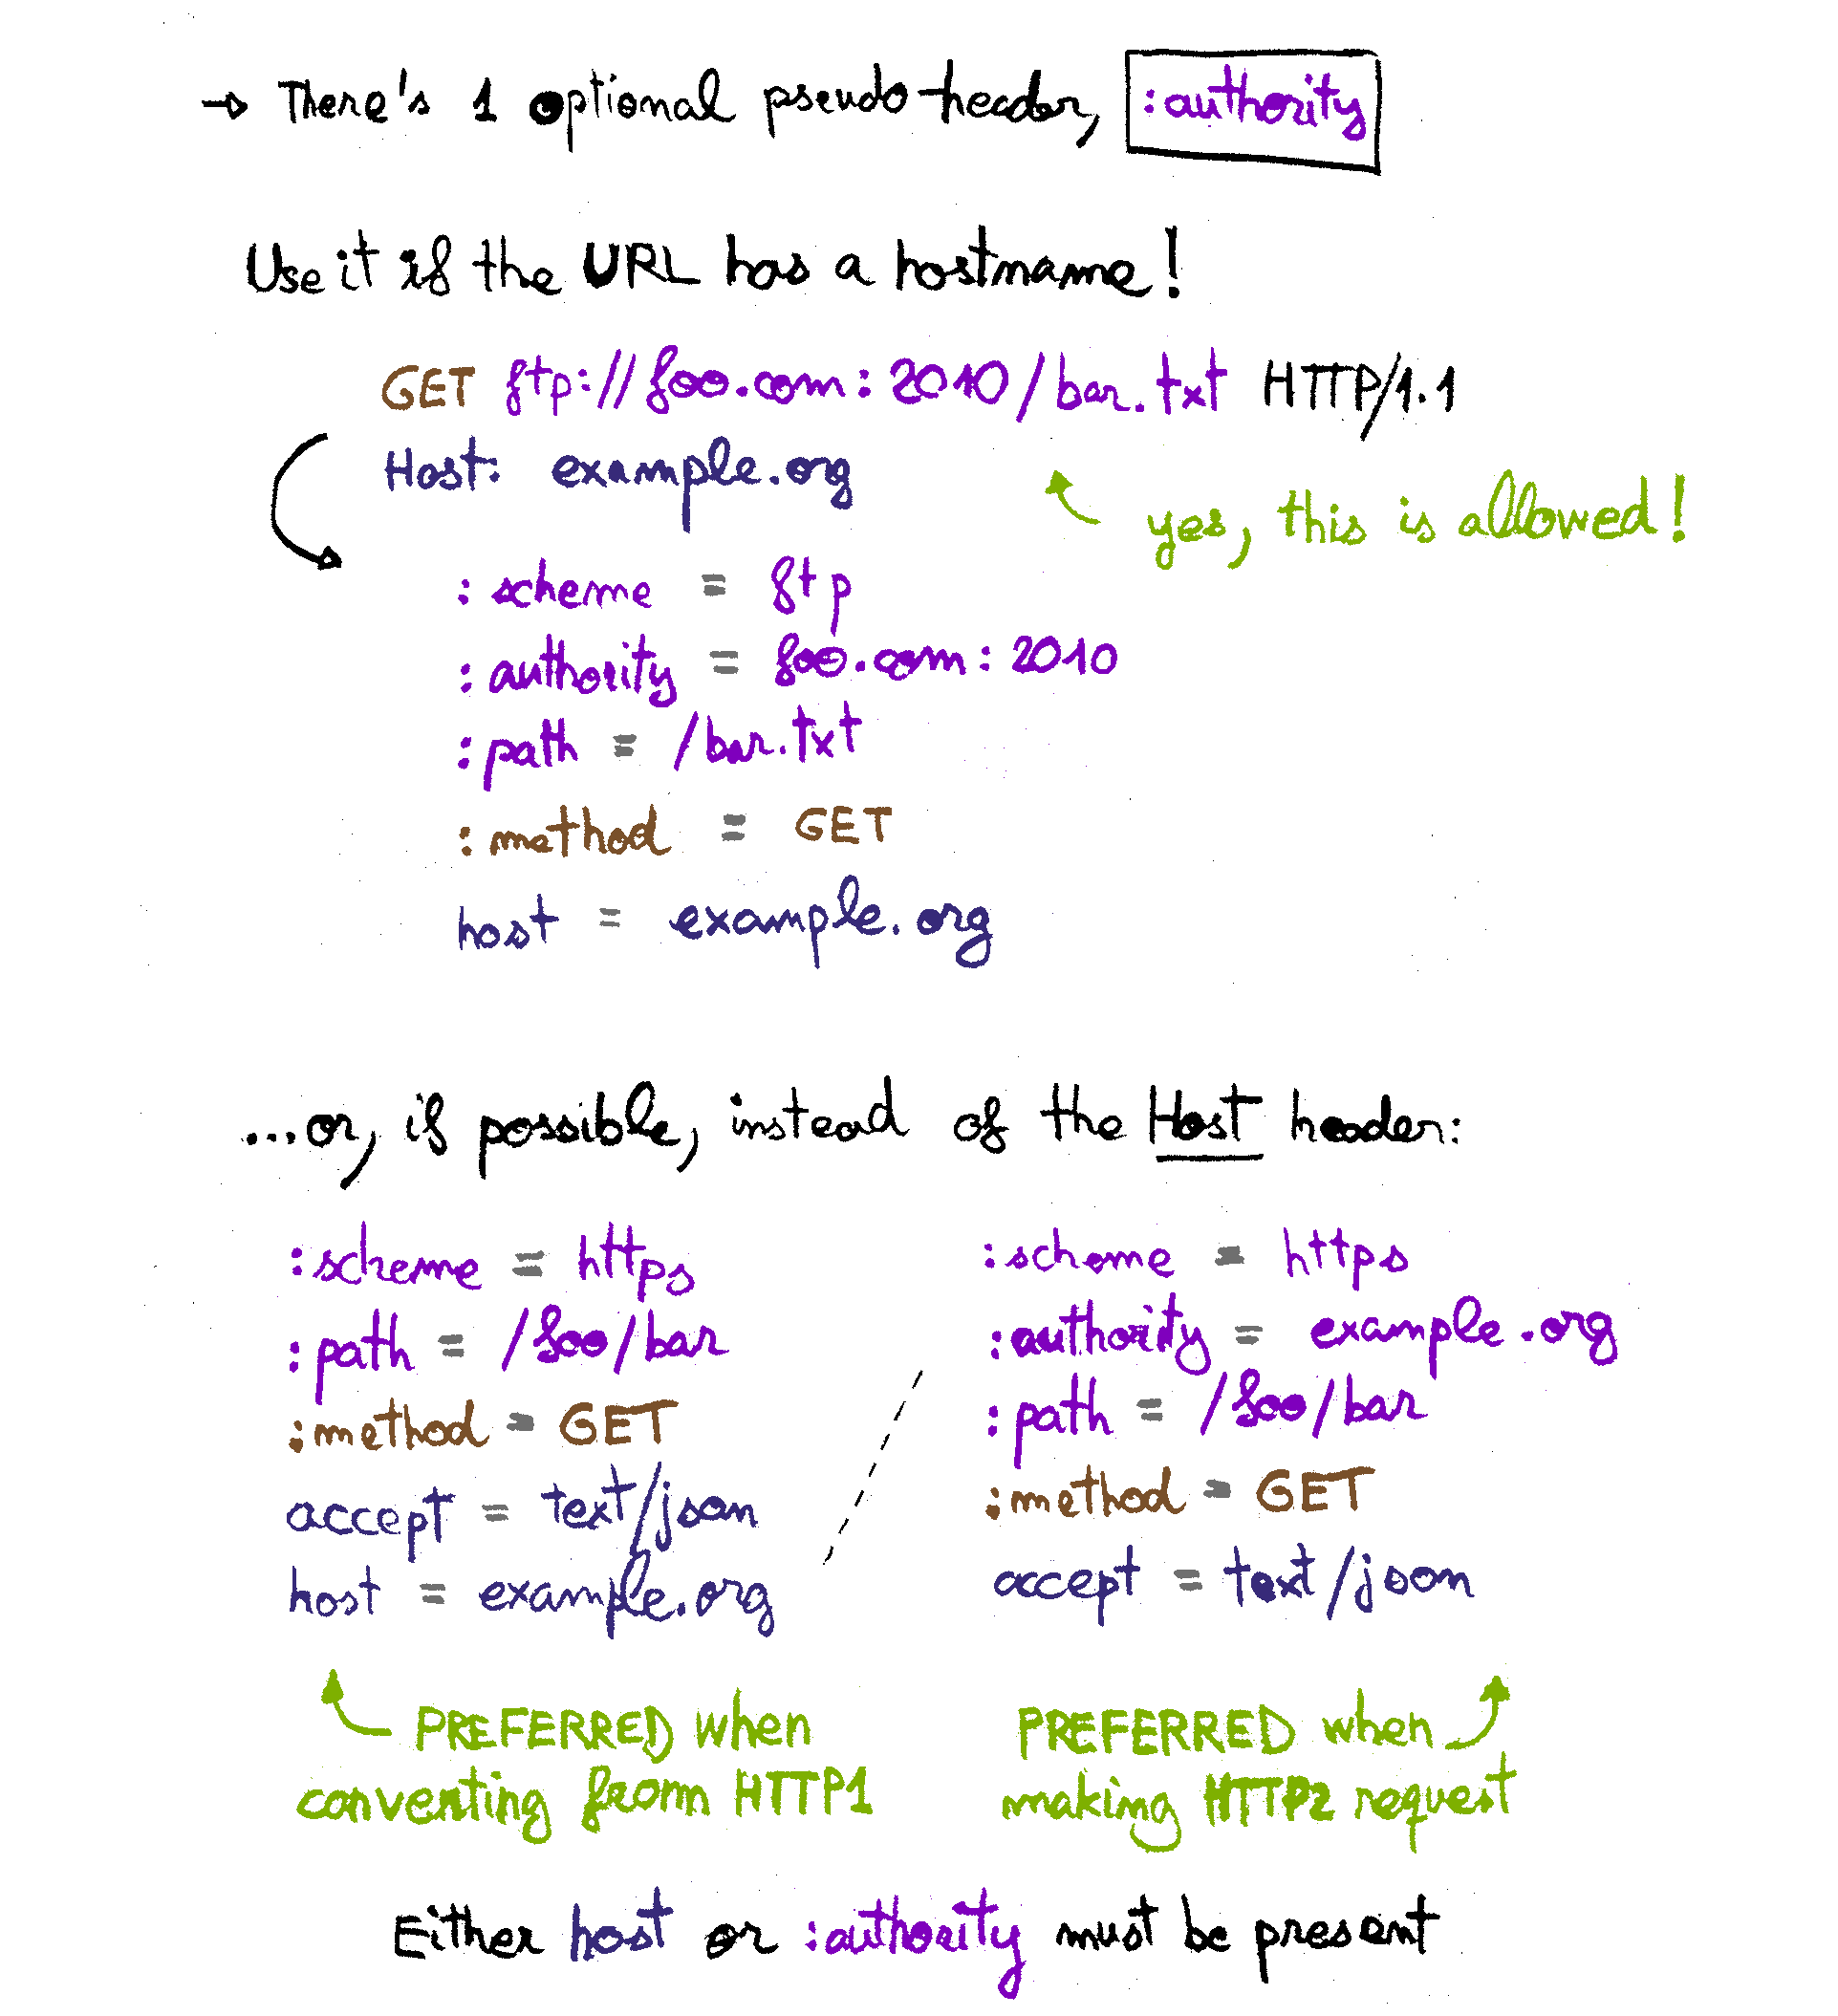 → There's 1 optional pseudo-header, :authority
Use it if the URL has a hostname!
GET ftp://foo.com:2010/bar.txt HTTP/1.1
Host: example.org
yes, this is allowed!
:scheme = ftp
:authority = foo.com:2010
:path = /bar.txt
:method = GET
host = example.org
...or, if possible, instead of the Host header:
:scheme = https
:path = /foo/bar
:method = GET
accept = text/json
host = example.org
PREFERRED when
conventing from HTTP1
:scheme = https
:authority = example.org
:path = /foo/bar
:method = GET
accept = text/json
PREFERRED when
making HTTP2 request
Either host or :authority must be present